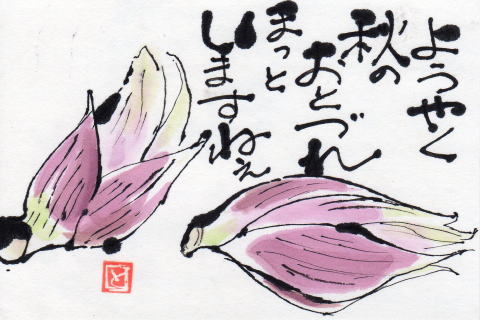 ようやく
秋の
おとづれ
ほっと
しますねぇ
と